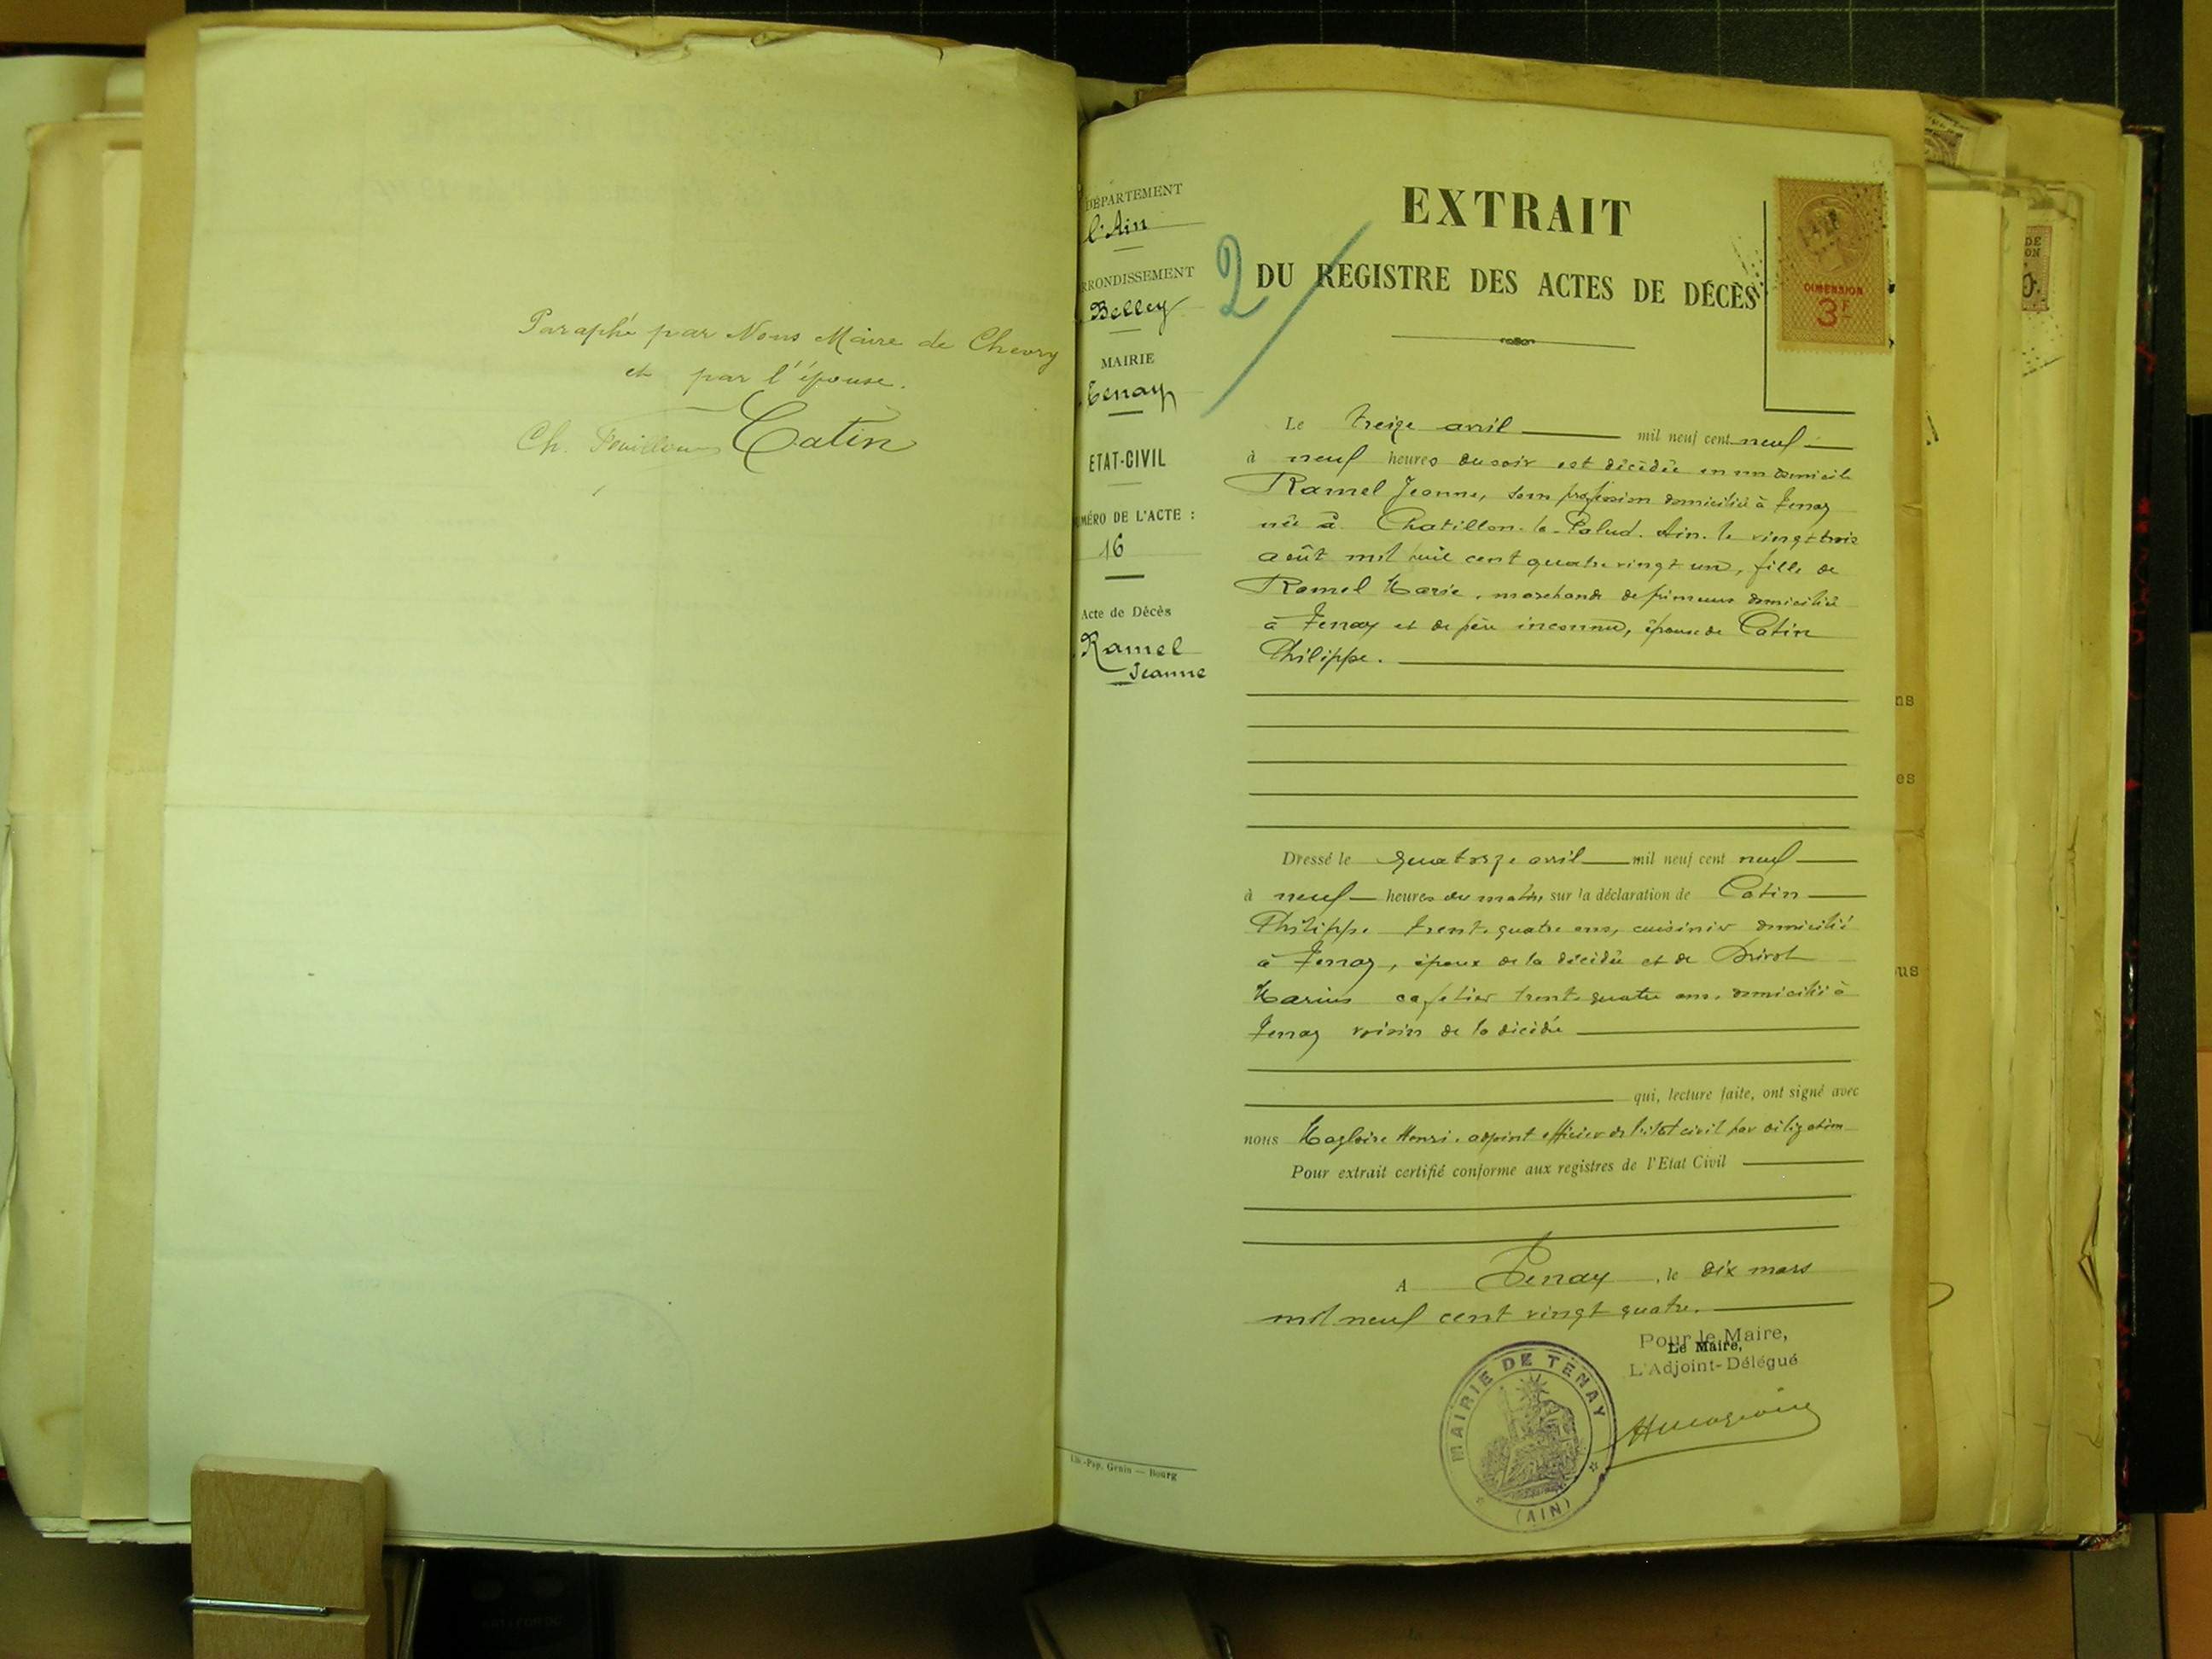 Paraphé par Nous Maire de Chevry
et par l'épouse.
Ch. Catin
DÉPARTEMENT
l'Ain
RRONDISSEMENT
Belley
MAIRIE
Tenay
ETAT-CIVIL
MÉRO DE L'ACTE :
16
Acte de Décès
Ramel
Jeanne
Lib.-Pap. Genin — Bourg
EXTRAIT
2 DU REGISTRE DES ACTES DE DÉCÈS
DIMENSION
3F
Le treize avril mil neuf cent neuf
à neuf heures du soir est décédée en son domicile
Ramel Jeanne, sans profession domiciliée à Tenay
née à Chatillon-la-Palud. Ain. le vingt trois
août mil huit cent quatre vingt un, fille de
Ramel Marie, marchande de primeurs domiciliée
à Tenay et de père inconnu, épouse de Catin
Philippe.
Dressé le quatorze avril mil neuf cent neuf
à neuf heures du matin sur la déclaration de Catin
Philippe trente quatre ans, cuisinier domicilié
à Tenay, époux de la décédée et de
Marius cafetier trente quatre ans, domicilié à
Tenay voisin de la décédée
qui, lecture faite, ont signé avec
nous Magloire Henri, adjoint officier de l'état civil par délégation
Pour extrait certifié conforme aux registres de l'Etat Civil
A Tenay, le dix mars
mil neuf cent vingt quatre.
Pour le Maire,
Le Maire,
L'Adjoint-Délégué
MAIRIE DE TENAY
(AIN)
ns
es
us
DE
ON